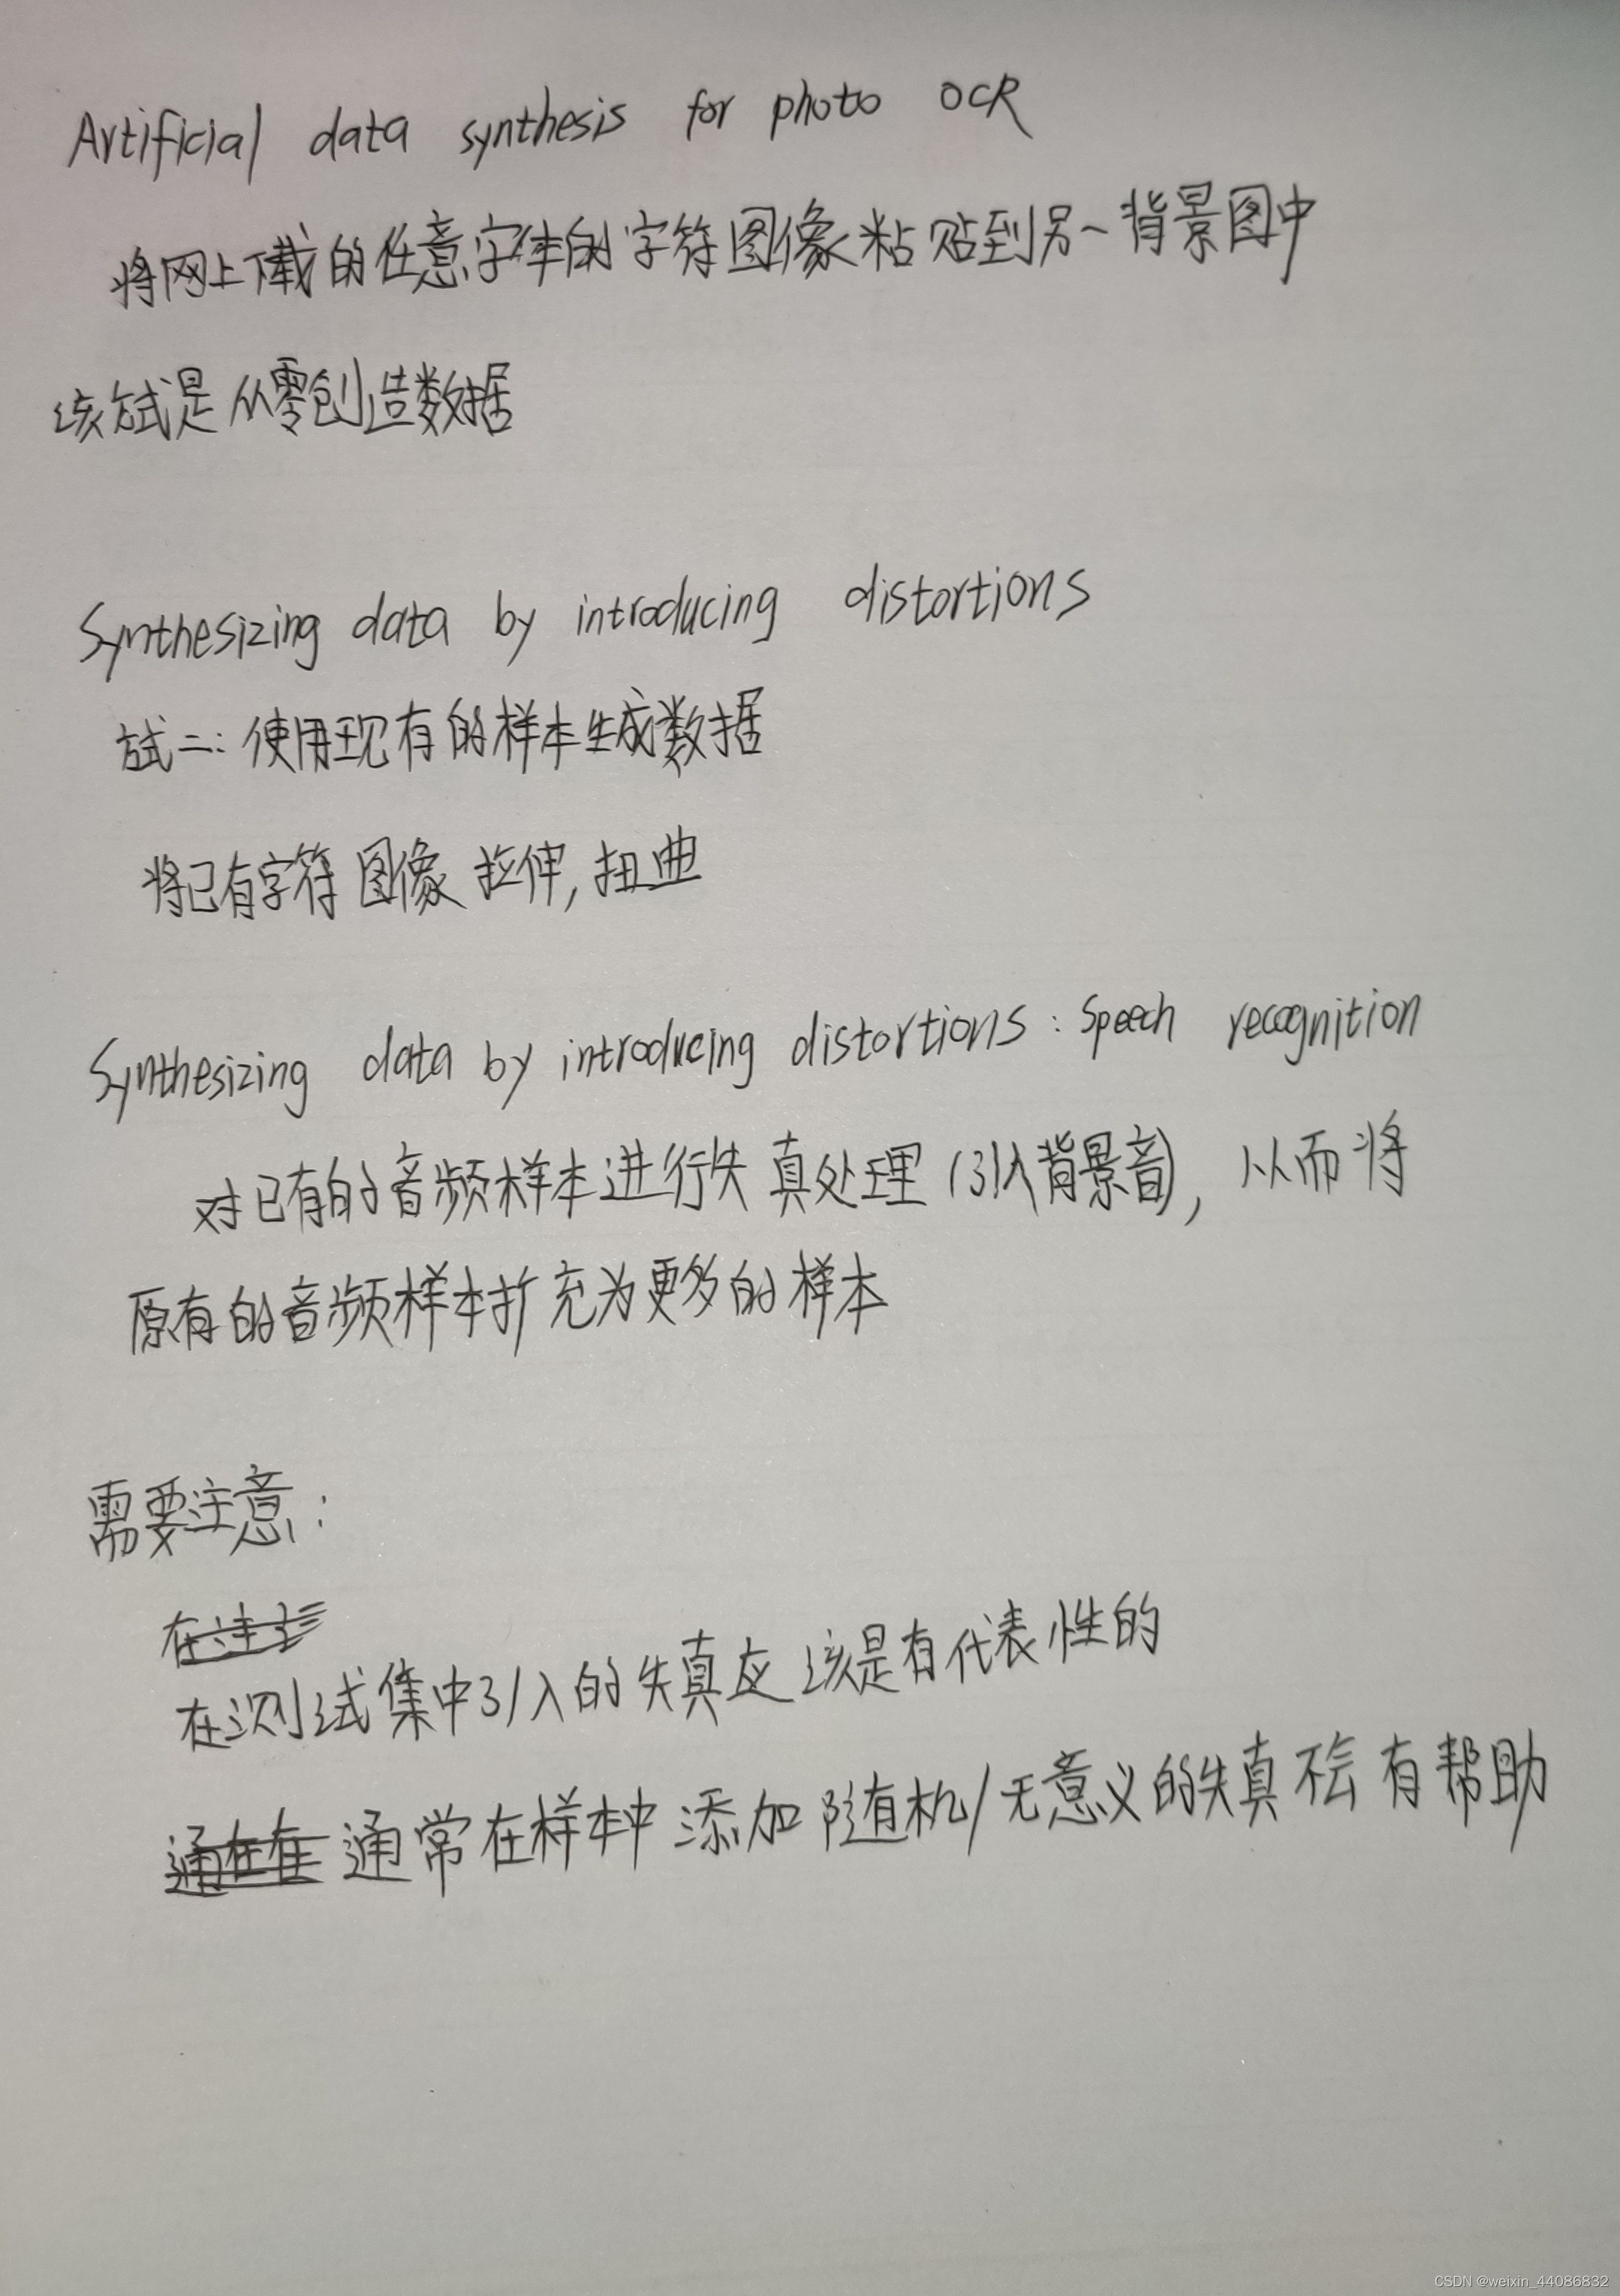 Artificial data synthesis for photo OCR
将网上下载的任意字体的字符图像粘贴到另一背景图中
该方式是从零创造数据
Synthesizing data by introducing distortions
方式二:使用现有的样本生成数据
将已有字符图像拉伸,扭曲
Synthesizing data by introducing distortions: Speech recognition
对已有的音频样本进行失真处理(引入背景音),从而将
原有的音频样本扩充为更多的样本
需要注意:
在测试集中引入的失真应该是有代表性的
通常在样本中添加随机/无意义的失真不会有帮助
CSDN @weixin_44086832